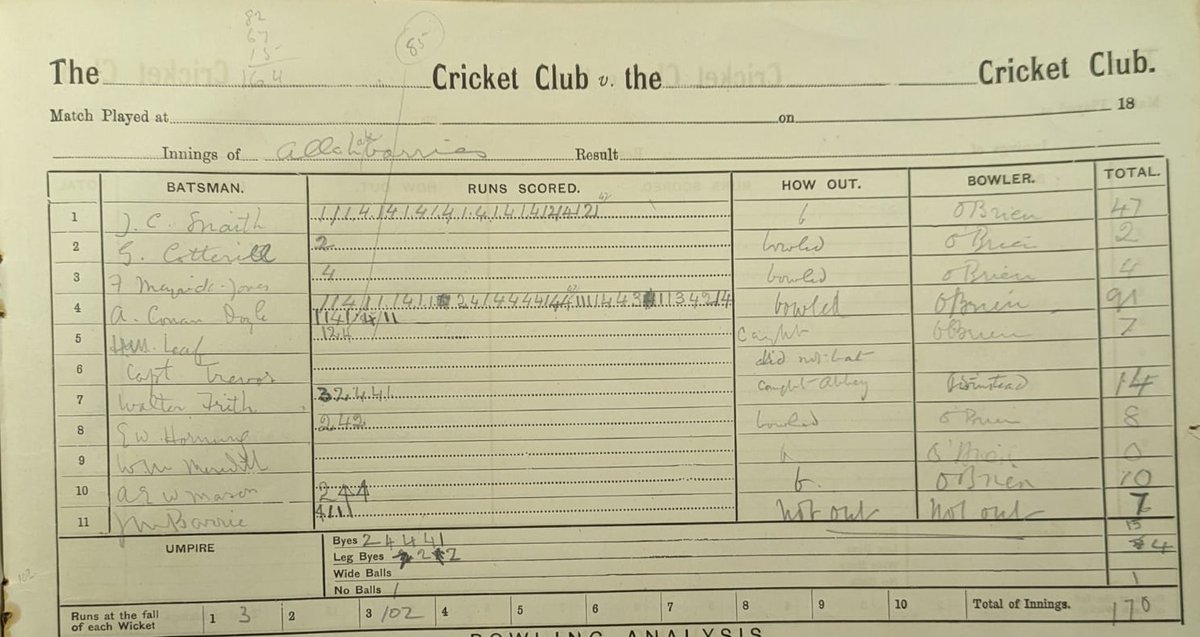 82
67
15
164
85
The Cricket Club v. the Cricket Club.
Match Played at on 18
Innings of Allahakbarries Result
BATSMAN. RUNS SCORED. HOW OUT. BOWLER. TOTAL.
1 J. C. Snaith b O'Brien 47
2 G. Cotterill 2 bowled O'Brien 2
3 4 bowled O'Brien 4
4 A. Conan Doyle bowled O'Brien 91
5 H.W. Leaf 124 Caught O'Brien 7
6 Capt Trevor did not bat
7 Walter Frith 32441 caught Abbey 14
8 E W Hornung 242 bowled O'Brien 8
9 W M Meredith b O'Brien 0
10 A E W Mason 244 b. O'Brien 10
11 J M Barrie 4111 Not out Not out 7
UMPIRE
Byes 24441 15
Leg Byes 2 2 4
Wide Balls
No Balls 1 1
Runs at the fall of each Wicket 1 3 2 3 102 4 5 6 7 8 9 10 Total of Innings. 170
BOWLING ANALYSIS